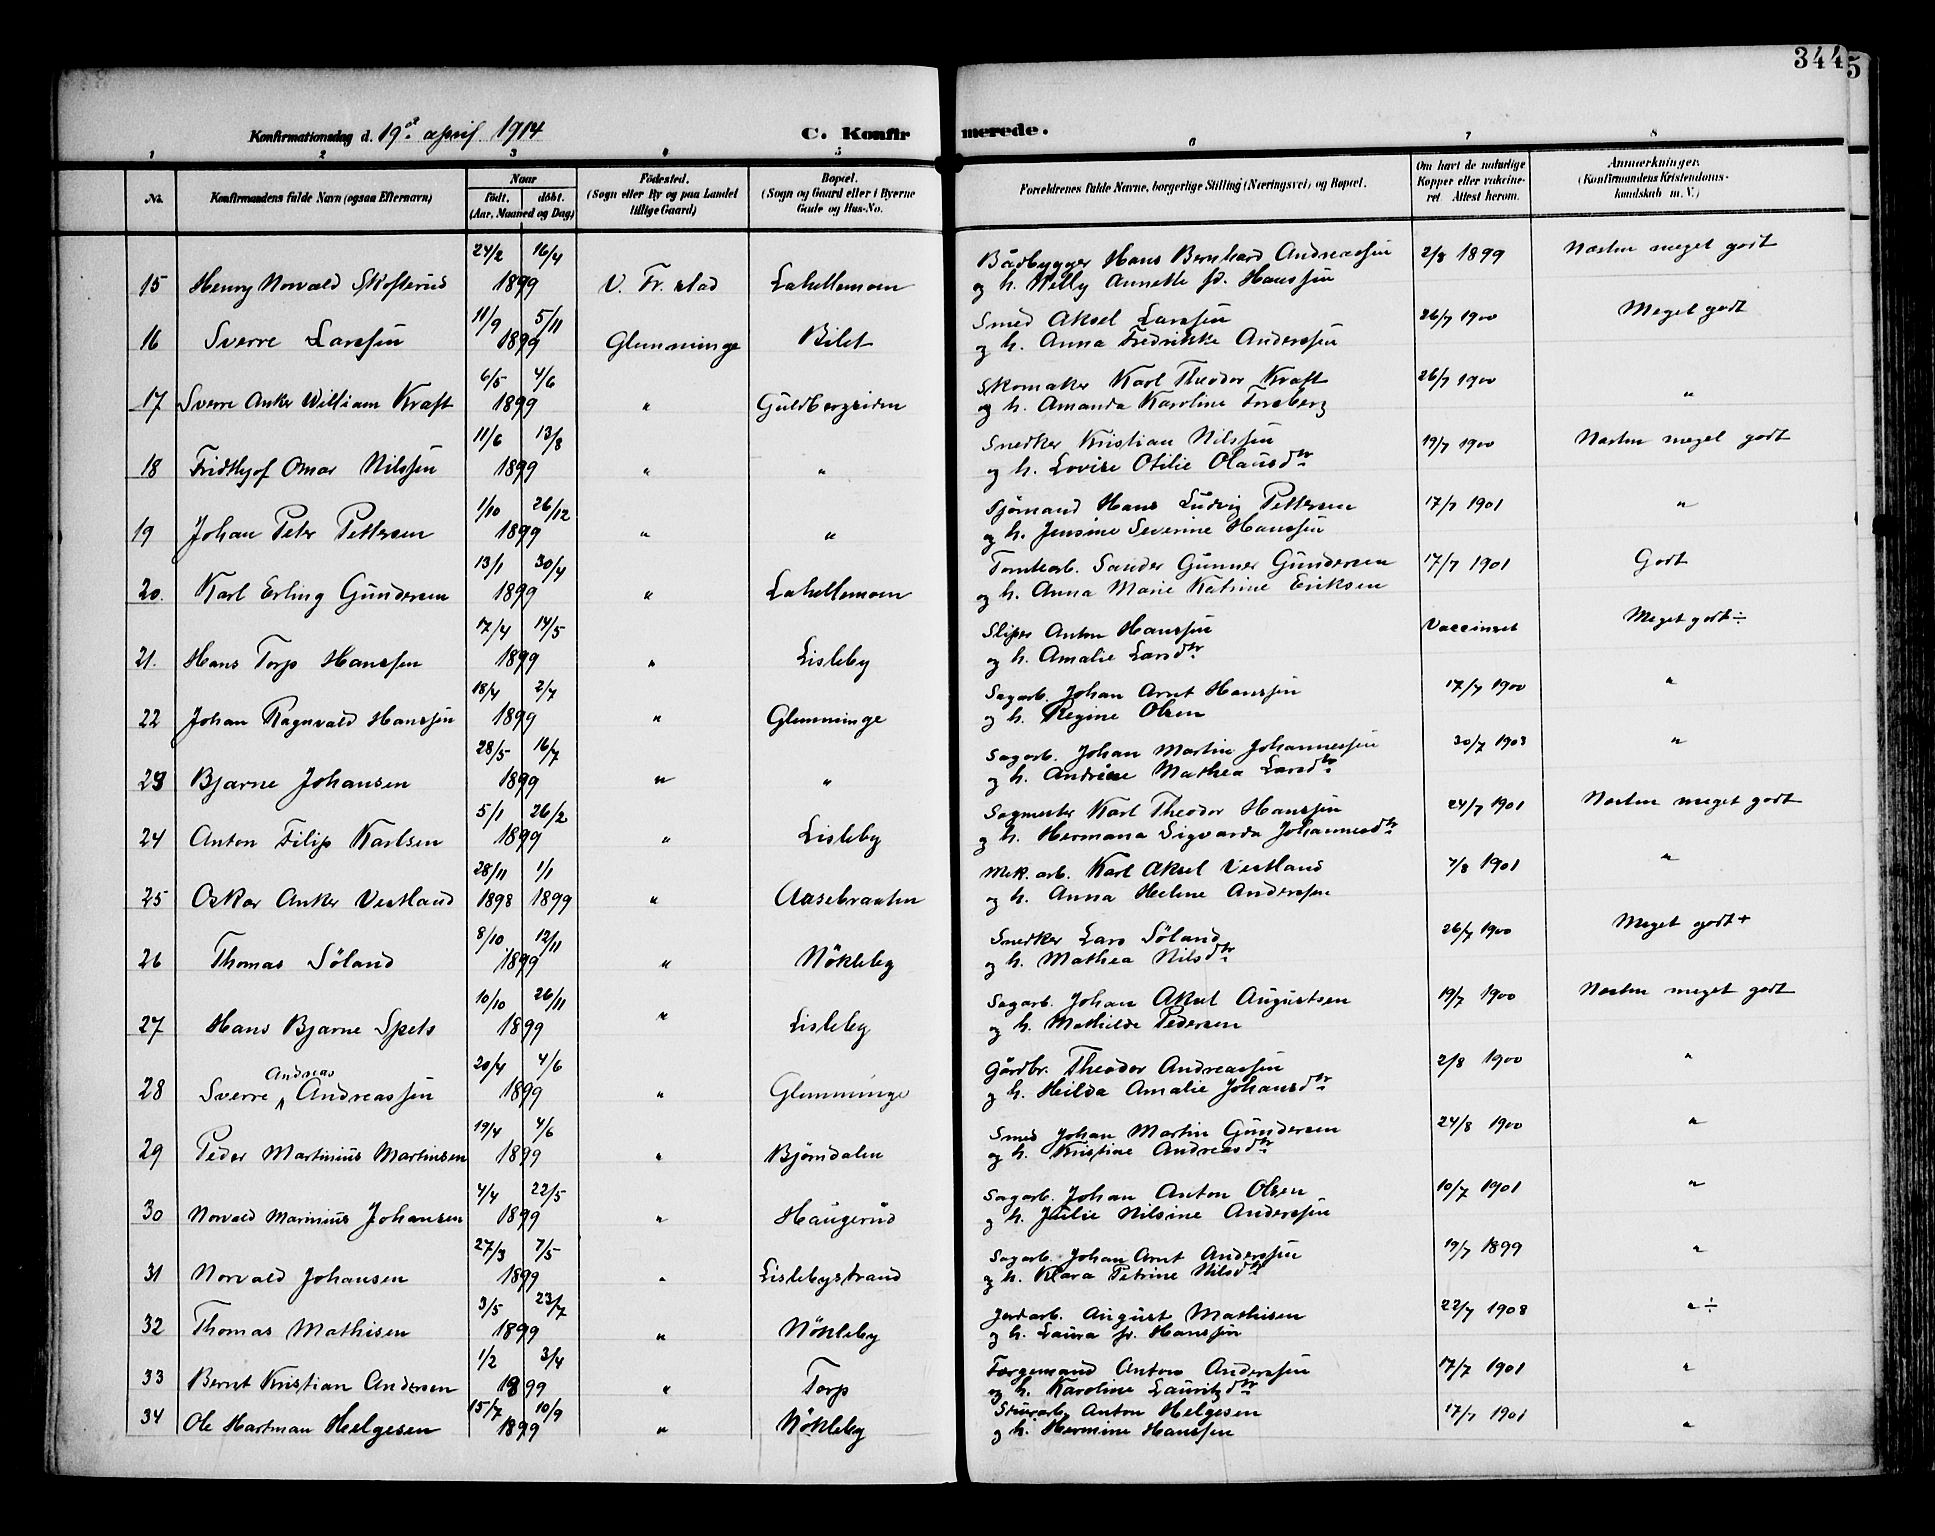 344
5
Konfirmationsdag d. 19de april 1914
C. Konfirmerede.
1 2 3 4 5 6 7 8
No. Konfirmandens fulde Navn (ogsaa Efternavn) Naar født. døbt. (Aar, Maaned og Dag) Fødested. (Sogn eller By og paa Landet tillige Gaard) Bopæl. (Sogn og Gaard eller i Byerne Gade og Hus-No. Forældrenes fulde Navne, borgerlige Stilling (Næringsvei) og Bopæl. Om havt de naturlige Kopper eller vakcineret. Attest herom. Anmerkninger. (Konfirmandens Kristendomskundskab m. V.)
24/2 16/4 Bådbygger Hans Bernhard Andreassen 2/8 1899 Næsten meget godt
15 Henry Norvald Skofterud 1899 V. Fr.stad Lahellemoen og h. Willy Annette fd. Hanssen
11/9 5/11 Smed Aksel Larssen 26/7 1900 Meget godt
16 Sverre Larssen 1899 Glemminge Bilet og h. Anna Fredrikke Anderssen
6/5 4/6 Skomaker Karl Theodor Kraft 26/7 1900 "
17 Sverre Anker William Kraft 1899 " Guldbergsiden og h. Amanda Karoline Forsberg
11/6 13/8 Snedker Kristian Nilssen 19/7 1900 Næsten meget godt
18 Fridthjof Omar Nilssen 1899 " " og h. Lovise Otilie Olausdtr
1/10 26/12 Sjømand Hans Ludvig Pettersen 17/7 1901 "
19 Johan Peter Pettersen 1899 " " og h. Jensine Severine Hanssen
13/1 30/4 Tomtearb. Sander Gunner Gundersen 17/7 1901 Godt
20. Karl Erling Gundersen 1899 " Lahellemoen og h. Anna Marie Katrine Eriksen
17/4 14/5 Sliper Anton Hanssen Vaccineret Meget godt ÷
21. Hans Torp Hanssen 1899 " Lisleby og h. Amalie Larsdtr
18/4 2/7 Sagarb. Johan Arnt Hanssen 17/7 1900 "
22 Johan Ragnvald Hanssen 1899 " Glemminge og h. Regine Olsen
28/5 16/7 Sagarb. Johan Martin Johannessen 30/7 1903 "
23 Bjarne Johansen 1899 " " og h. Andrine Mathea Larsdtr
5/1 26/2 Sagmester Karl Theodor Hanssen 24/7 1901 Næsten meget godt
24 Anton Filip Karlsen 1899 " Lisleby og h. Hermana Sigvarda Johannesdtr
28/11 1/1 Mek. arb. Karl Aksel Vestland 7/8 1901 "
25 Oskar Anker Vestland 1898 1899 " Aasebraaten og h. Anna Helene Anderssen
8/10 12/11 Snedker Lars Søland 26/7 1900 Meget godt +
26 Thomas Søland 1899 " Nökleby og h. Mathea Nilsdtr
10/10 26/11 Sagarb. Johan Aksel Augustsen 19/7 1900 Næsten meget godt
27 Hans Bjarne Spets 1899 " Lisleby og h. Mathilde Pedersen
20/4 4/6 Gårdbr. Theodor Andreassen 2/8 1900 "
28 Sverre Andreas Andreassen 1899 " Glemminge og h. Hilda Amalie Johansdtr
19/4 4/6 Smed Johan Martin Gundersen 24/8 1900 "
29 Peder Martinius Martinsen 1899 " Bjørndalen og h. Kristine Andreasdtr
4/4 22/5 Sagarb. Johan Anton Olsen 10/7 1901 "
30 Norvald Marinius Johansen 1899 " Haugerud og h. Julie Nilsine Anderssen
27/3 7/5 Sagarb. Johan Arnt Anderssen 19/7 1899 "
31 Norvald Johansen 1899 " Lislebystrand og h. Klara Petrine Nilsdtr
3/5 23/7 Jordarb. August Mathisen 22/7 1908 " ÷
32 Thomas Mathisen 1899 " Nökleby og h. Laura fr. Hanssen
1/2 3/4 Færgemand Anton Anderssen 17/7 1901 "
33 Bernt Kristian Andersen 1899 " Torp og h. Karoline Lauritzdtr
15/7 10/9 Anton Helgesen 17/7 1901 "
34 Ole Hartman Helgesen 1899 " Nökleby og h. Hermine Hanssen